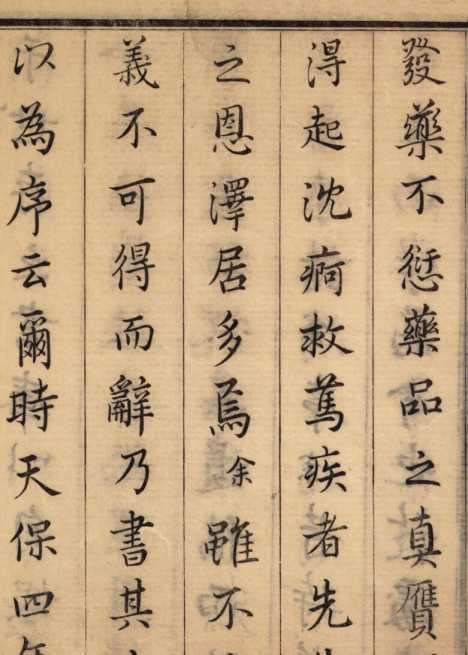 發藥不愆藥品之真贋
得起沈痾救篤疾者先
之恩澤居多焉余雖不
義不可得而辭乃書其
以為序云爾時天保四年